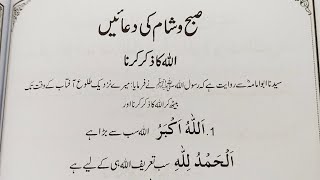 صبح و شام کی دعائیں
اللہ کا ذکر کرنا
سیدنا ابوامامہؓ سے روایت ہے کہ رسول اللہ ﷺ نے فرمایا: میرے نزدیک طلوع آفتاب کے وقت تک
بیٹھ کر اللہ کا ذکر کرنا اور
1. اَللّٰهُ اَكْبَرُ اللہ سب سے بڑا ہے
اَلْحَمْدُ لِلّٰهِ سب تعریف اللہ ہی کے لیے ہے